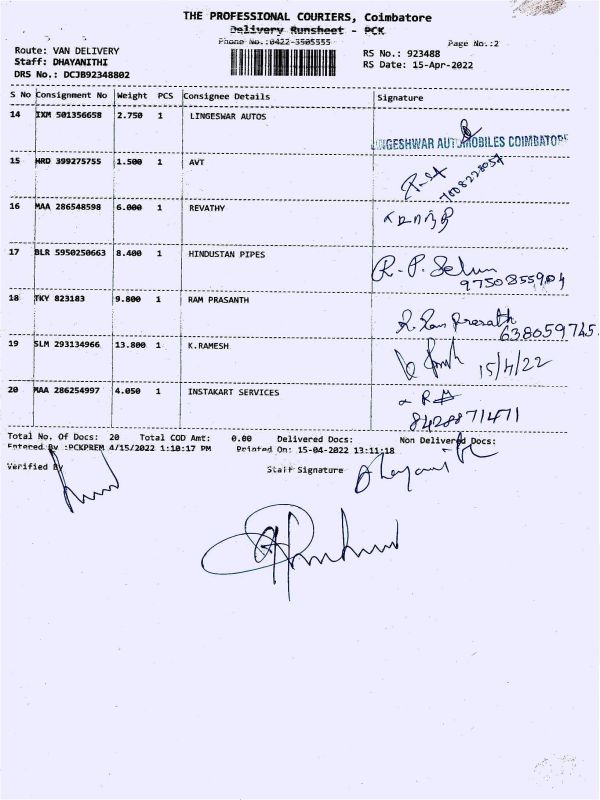 THE PROFESSIONAL COURIERS, Coimbatore
Delivery Runsheet - PCK
Phone No.:0422-3505555
Page No.:2
Route: VAN DELIVERY
Staff: DHAYANITHI
DRS No.: DCJB92348802
RS No.: 923488
RS Date: 15-Apr-2022
S No Consignment No Weight PCS Consignee Details Signature
14 IXM 501356658 2.750 1 LINGESWAR AUTOS
LINGESHWAR AUTOMOBILES COIMBATORE
15 HRD 399275755 1.500 1 AVT
7008228057
16 MAA 286548598 6.000 1 REVATHY
17 BLR 5950250663 8.400 1 HINDUSTAN PIPES
R. P. Selvan
9750855904
18 TKY 823183 9.800 1 RAM PRASANTH
R. Ram Prasath
638059745
19 SLM 293134966 13.800 1 K.RAMESH
15/4/22
20 MAA 286254997 4.050 1 INSTAKART SERVICES
8428871471
Total No. Of Docs: 20 Total COD Amt: 0.00 Delivered Docs: Non Delivered Docs:
Entered By :PCKPREM 4/15/2022 1:10:17 PM Printed On: 15-04-2022 13:11:18
Verified By Staff Signature